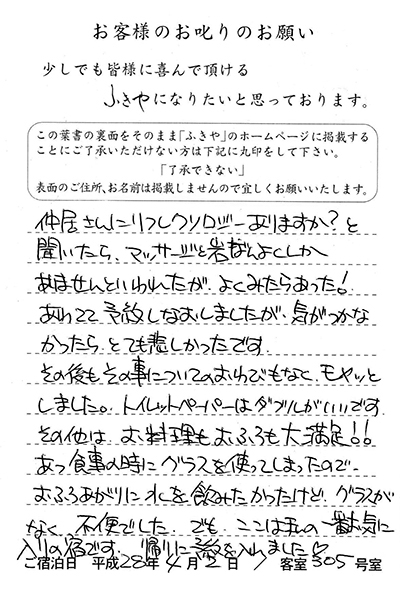 お客様のお叱りのお願い
少しでも皆様に喜んで頂ける
ふきやになりたいと思っております。
この葉書の裏面をそのまま「ふきや」のホームページに掲載する
ことにご了承いただけない方は下記に丸印をして下さい。
「了承できない」
表面のご住所、お名前は掲載しませんので宜しくお願いいたします。
仲居さんにリフレクソロジーありますか?と
聞いたら、マッサージと岩ばんよくしか
ありませんといわれたが、よくみたらあった!
あわてて予約しなおしましたが、気がつかな
かったら、とても悲しかったです。
その後もその事についてのおわびもなく、モヤッと
しました。トイレットペーパーはダブルがいいです。
その他は、お料理もおふろも大満足!!
あっ食事の時にグラスを使ってしまったので、
おふろあがりに水を飲みたかったけど、グラスが
なく、不便でした。でも、ここは私の一番お気に
入りの宿です。帰りに予約を入れました♡
ご宿泊日 平成28年4月2日 客室305号室